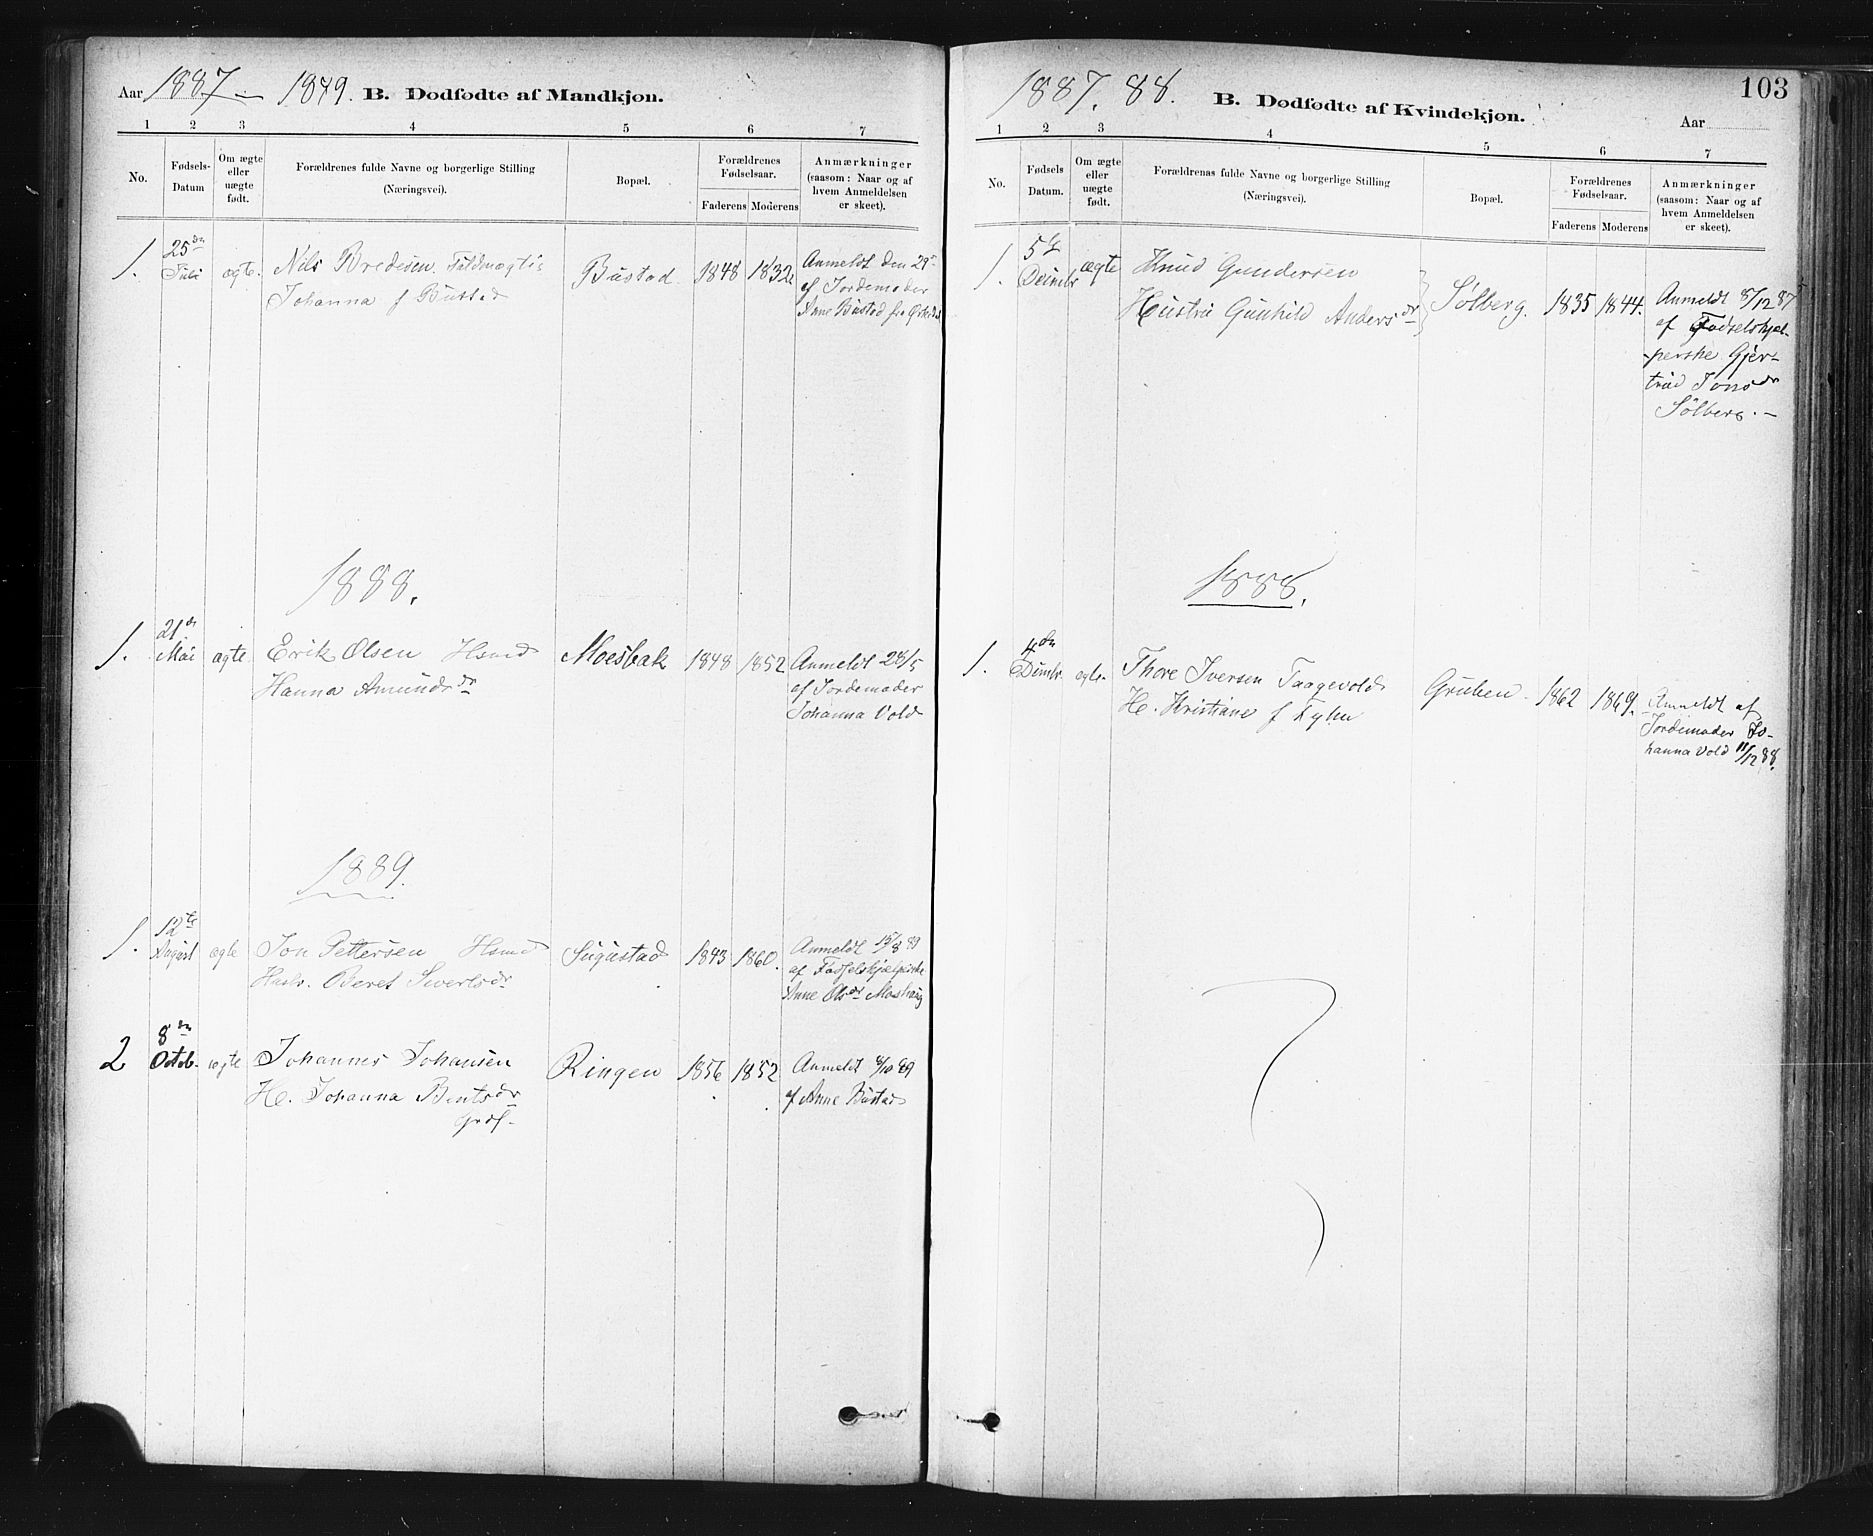 Aar 1887 — 1849. B. Dødfødte af Mandkjøn.
1 2 3 4 5 6 7
No. Fødsels-Datum Om ægte eller uægte født. Forældrenes fulde Navne og borgerlige Stilling (Næringsvei). Bopæl. Forældrenes Fødselsaar. Faderens Moderens Anmærkninger (saasom: Naar og af hvem Anmeldelsen er skeet).
1. 25de Juli ægte. Nils Bredesen Bustad 1848 1832 Anmeldt den 29de
Johanna f Bustad af Jordemoder
Anne Bustad fra
1888.
1. 21de Mai ægte Erik Olsen Hsmd Moesbak 1848 1852 Anmeldt 28/5
Hanna Amundsdr af Jordemoder
Johanna Vold
1889.
1. 12te August ægte Jon Pettersen Hsmd Sugustad 1843 1860. Anmeldt 15/8 89
Hustr. Beret Sivertsdr af Fødselshjælperske
Anne Olsdr
2 8de Octob. ægte Johannes Johansen Ringen 1856 1852 Anmeldt 8/10 89
H. Johanna Bentsdr af Anne Bustad
1887. 88. B. Dødfødte af Kvindekjøn. Aar
103
1 2 3 4 5 6 7
No. Fødsels Datum. Om ægte eller uægte født. Forældrenas fulde Navne og borgerlige Stilling (Næringsvei). Bopæl. Forældrenes Fødselsaar. Faderens Moderens Anmærkninger (saasom: Naar og af hvem Anmeldelsen er skeet).
1. 5te Decembr ægte Knud Gundersen Sølberg. 1835 1844. Anmeldt 8/12 87
Hustru Gunhild Andersdr af Fødselshjæl-
perske Gjer-
trud Jonsdr
Sølberg. —
1888.
1. 4de Decmbr. ægte. Thore Iversen Taagevold Gruben 1862 1869. Anmeldt af
H. Kristiane f Jordemoder Jo-
hanna Vold 11/12 88.